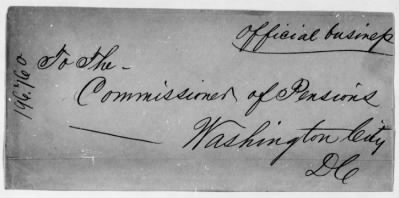 Official business
To The
Commissioner of Pensions
Washington City
DC